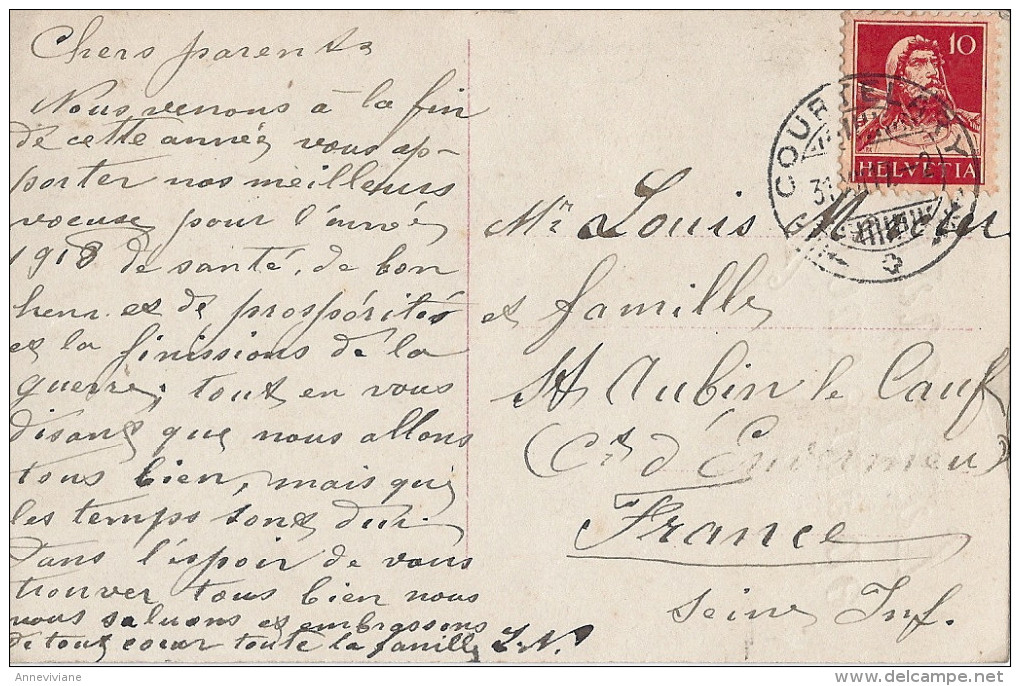 Chers parents
Nous venons à la fin
de cette année vous ap-
porter nos meilleurs
voeuse pour l'année
1918 de santé, de bon
heur et de prospérités
et la finissions de la
guerre; tout en vous
disant que nous allons
tous bien, mais que
les temps sont dur.
Dans l'espoir de vous
trouver tous bien nous
vous saluons et embrassons
de tout coeur toute la famille L.N.
10
HELVETIA
COURTELARY
Mr Louis
et famille
St Aubin le Cauf
(Ct d'Envermeu)
France
Seine Inf.
Anneviviane
delcampe.net